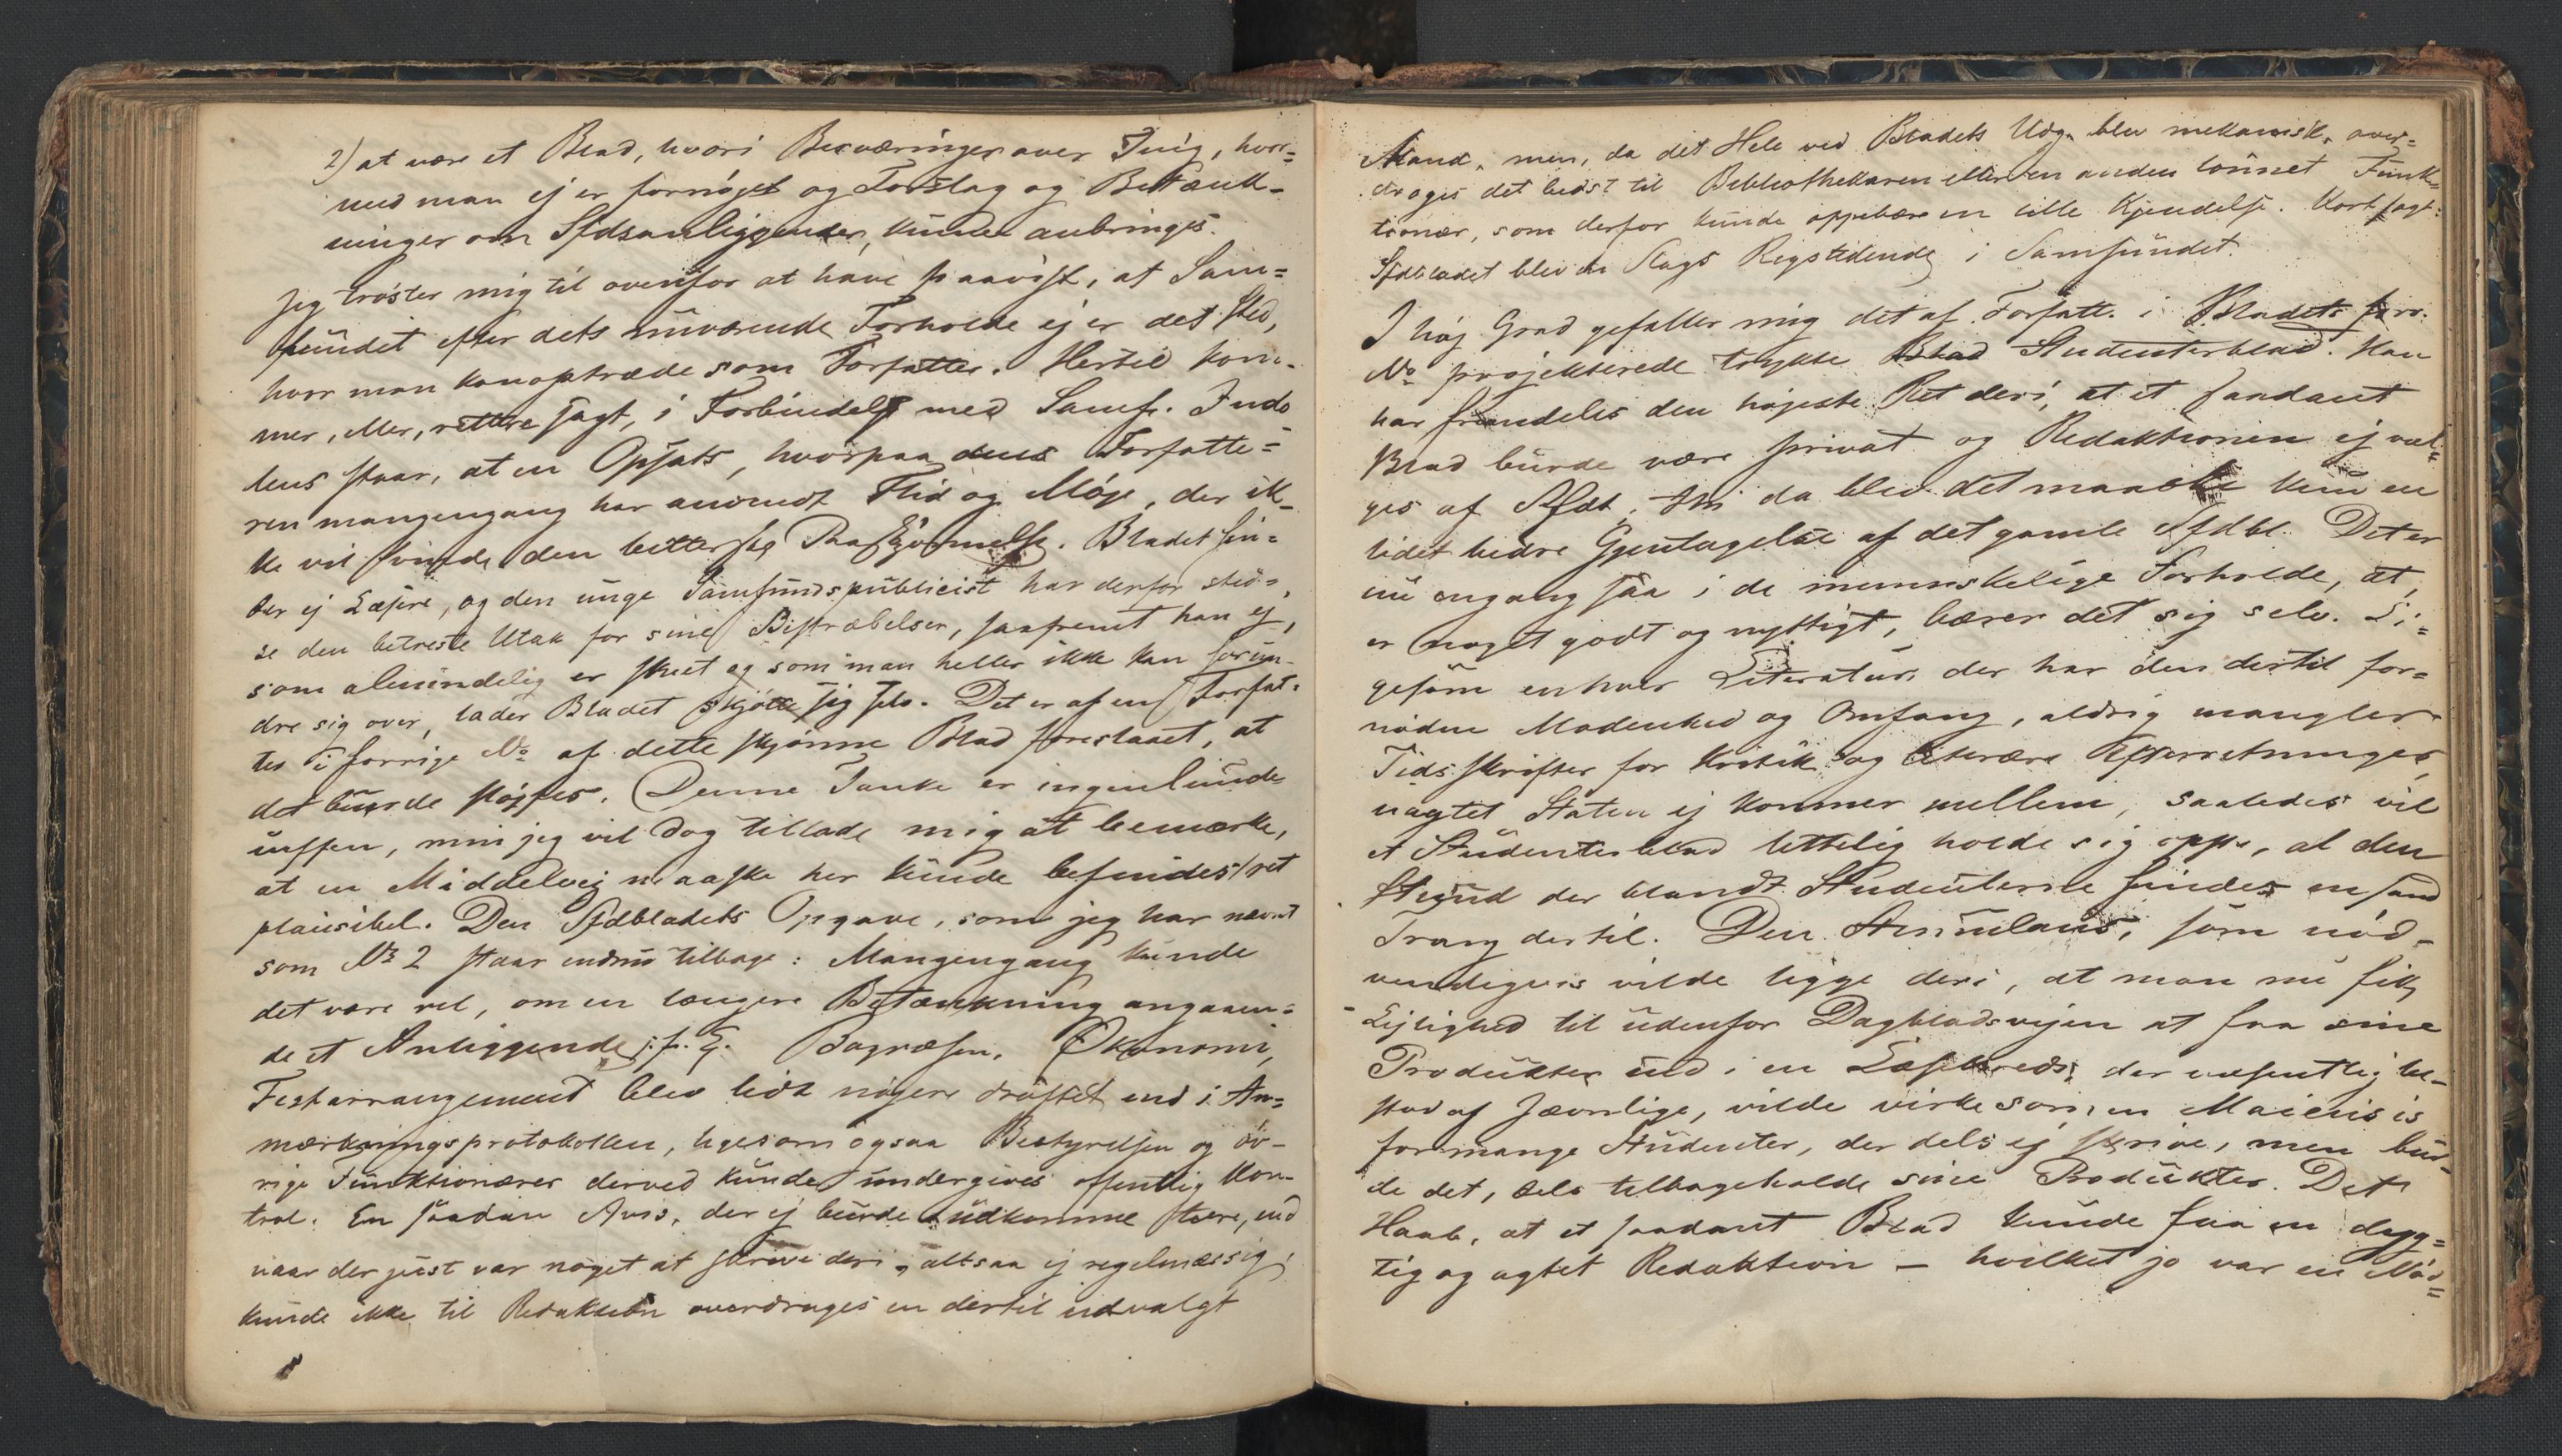 2) at være et Blad, hvori Besværinger over Ting, hvor=
med man ej er fornöjet og Forslag og Betænk-
ninger om Sfdsanliggender, kunde anbringes.
Jeg tröster mig til ovenfor at have paavist, at Sam=
fundet efter dets nuværende Forholde ej er det Sted,
hvor man kan optræde som Forfatter. Hertil kom-
mer, eller, rettere sagt, i Forbindelse med Samf. Inds
lens staar, at en Opsats, hvorpaa dens Forfatte=
ren mangengang har anvendt Flid og Möje, der ik-
ke vil finde den bitterste Paaskjönnelse. Bladet fin=
der ej Læsere, og den unge Samfundspublicist har derfor sted=
se den betreste Utak for sine Bestræbelser, saafremt han ej,
som almindelig er skeet og som man heller ikke kan forun-
dre sig over, lader Bladet skjötte sig selv. Det er af en Forfat=
ter i forrige No af dette skjönne Blad foreslaaet, at
det burde slöjfes. Denne Tanke er ingenlunde
uffen, men jeg vil dog tillade mig at bemærke,
at en Middelvej maaske her kunde befindes ret
plausibel. Den Sfdbladets Opgave, som jeg har nævnt
som No 2 staar endnu tilbage: Mangengang kunde
det være vel, om en længere Betænkning angaaen=
de et Anliggende j. f. E. Bogvæsen, Økonomi,
Festarrangement blev lidt nöjere dröftet end i An=
mærkningsprotokollen, ligesom ogsaa Bestyrelsen og öv-
rige Funktionærer derved kunde undergives offentlig Kon-
trol. En saadan Avis, der ej burde udkomme större, end
naar der just var noget at skrive deri, altsaa ej regelmæssig,
kunde ikke til Redaktion overdrages en dertil udvalgt
Mand, men, da det Hele ved Bladets Udg. blev mekanisk, over=
droges det bedst til Bibliothekaren eller en anden lönnet Funk=
tionær, som derfor kunde oppebære en lille Kjendelse. Kort sagt:
Sfdbladet blev en Slags Rigstidende i Samfundet.
I höj Grad gefaller mig det af Forfatt. i Bladets forr.
No projekterede trykte Blad Studenterblad. Han
har fremdeles den höjeste Ret deri, at et saadant
Blad burde være privat og Redaktionen ej væl=
ges af Sfdt, thi da blev det maaske kun en
lidet bedre Gjentagelse af det gamle Sfdbl. Det er
nu engang saa i de menneskelige Forholde, at,
er noget godt og nyttigt, bærer det sig selv. Li=
gesom enhver Literatur, der har den dertil for=
nödne Modenhed og Omfang, aldrig mangler
Tidsskrifter for Kritik og literære Efterretninger,
uagtet Staten ej kommer mellem, saaledes vil
et Studenterblad lettelig holde sig opp., al den
Stund der blandt Studenterne findes en sand
Trang dertil. Den Stimulans, som nöd-
vendigvis vilde ligge deri, at man nu fik
Lejlighed til udenfor Dagbladsvejen at faa sine
Produkter ud i en Læsekreds, der væsentlig be-
stod af Jævnlige, vilde virke som en Maieusis
for mange Studenter, der dels ej skrive, men bur-
de det, dels tilbageholde sine Produkter. Det
Haab, at et saadant Blad kunde faa en dyg=
tig og agtet Redaktion — hvilket jo var en Nöd=